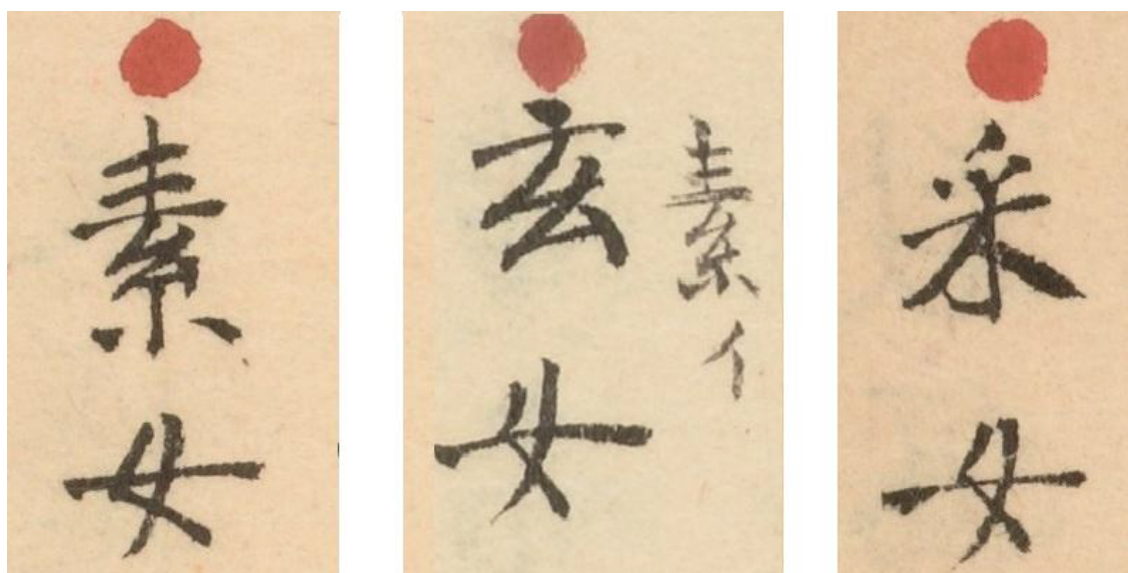 素女
玄女
素イ
采女